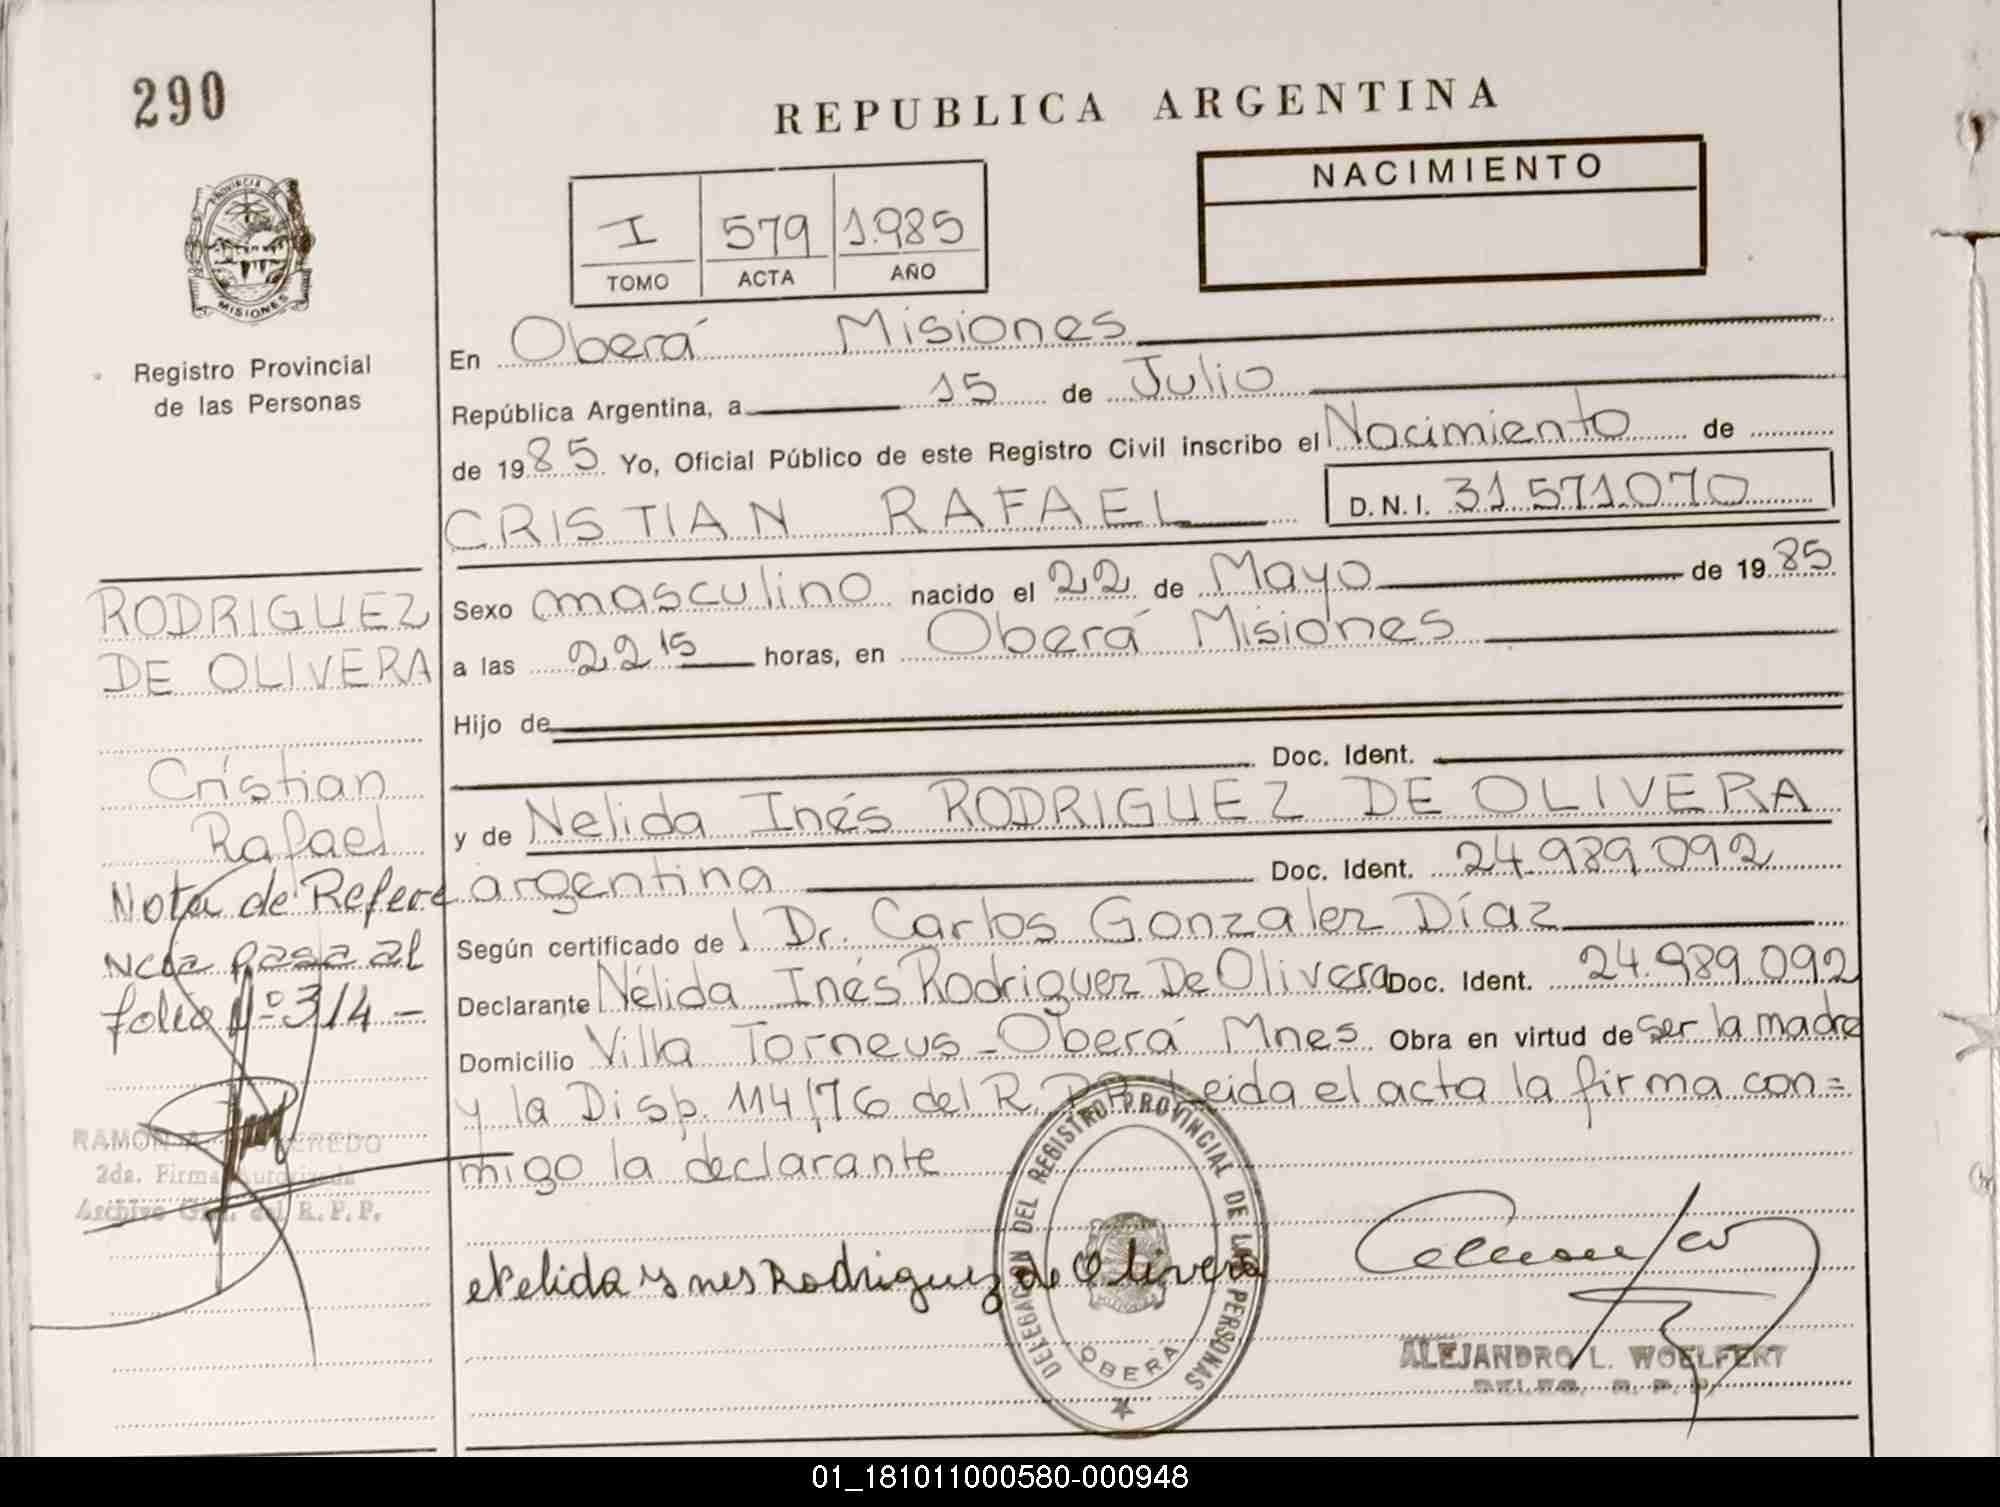 290
REPUBLICA ARGENTINA
PROVINCIA DE
MISIONES
Registro Provincial
de las Personas
I 579 1.985
TOMO ACTA AÑO
NACIMIENTO
En Oberá Misiones
República Argentina, a 15 de Julio
de 1985 Yo, Oficial Público de este Registro Civil inscribo el Nacimiento de
CRISTIAN RAFAEL D.N.I. 31.571.070
Sexo masculino nacido el 22 de Mayo de 1985
a las 22 15 horas, en Oberá Misiones
Hijo de
Doc. Ident.
y de Nelida Inés RODRIGUEZ DE OLIVERA
argentina Doc. Ident. 24.989.092
Según certificado de l Dr. Carlos Gonzalez Díaz
Declarante Nélida Inés Rodriguez De Olivera Doc. Ident. 24.989.092
Domicilio Villa Torneus - Oberá Mnes Obra en virtud de ser la madre
y la Disp. 114/76 del R. P.P. Leida el acta la firma con=
migo la declarante
RODRIGUEZ
DE OLIVERA
Cristian
Rafael
Nota de Refere
ncia pasa al
folio Nº 314 -
RAMON A.
2da. Firma Autorizada
Archivo Gral. del R.P.P.
Nelida Ynes Rodriguez de Olivera
DELEGACION DEL REGISTRO PROVINCIAL DE LAS PERSONAS
OBERÁ
ALEJANDRO L. WOELFERT
DELEG. R. P. P.
01_181011000580-000948